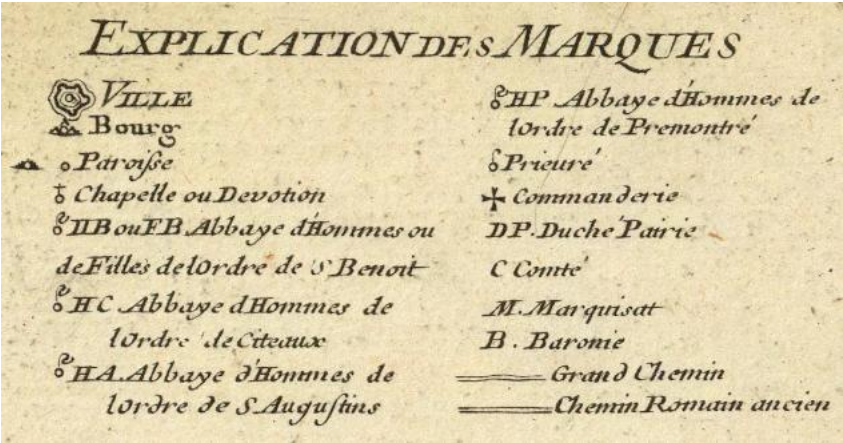 EXPLICATION DES MARQUES
VILLE
Bourg
Paroiſse
Chapelle ou Devotion
HB ou FB. Abbaye d'Hommes ou
de Filles de l'Ordre de S Benoit
HC Abbaye d'Hommes de
l'Ordre de Citeaux
HA. Abbaye d'Hommes de
l'ordre de S. Auguſtins
HP Abbaye d'Hommes de
l'ordre de Premontré
Prieuré
Commanderie
DP. Duché Pairie
C Comté
M. Marquisat
B. Baronie
Grand Chemin
Chemin Romain ancien